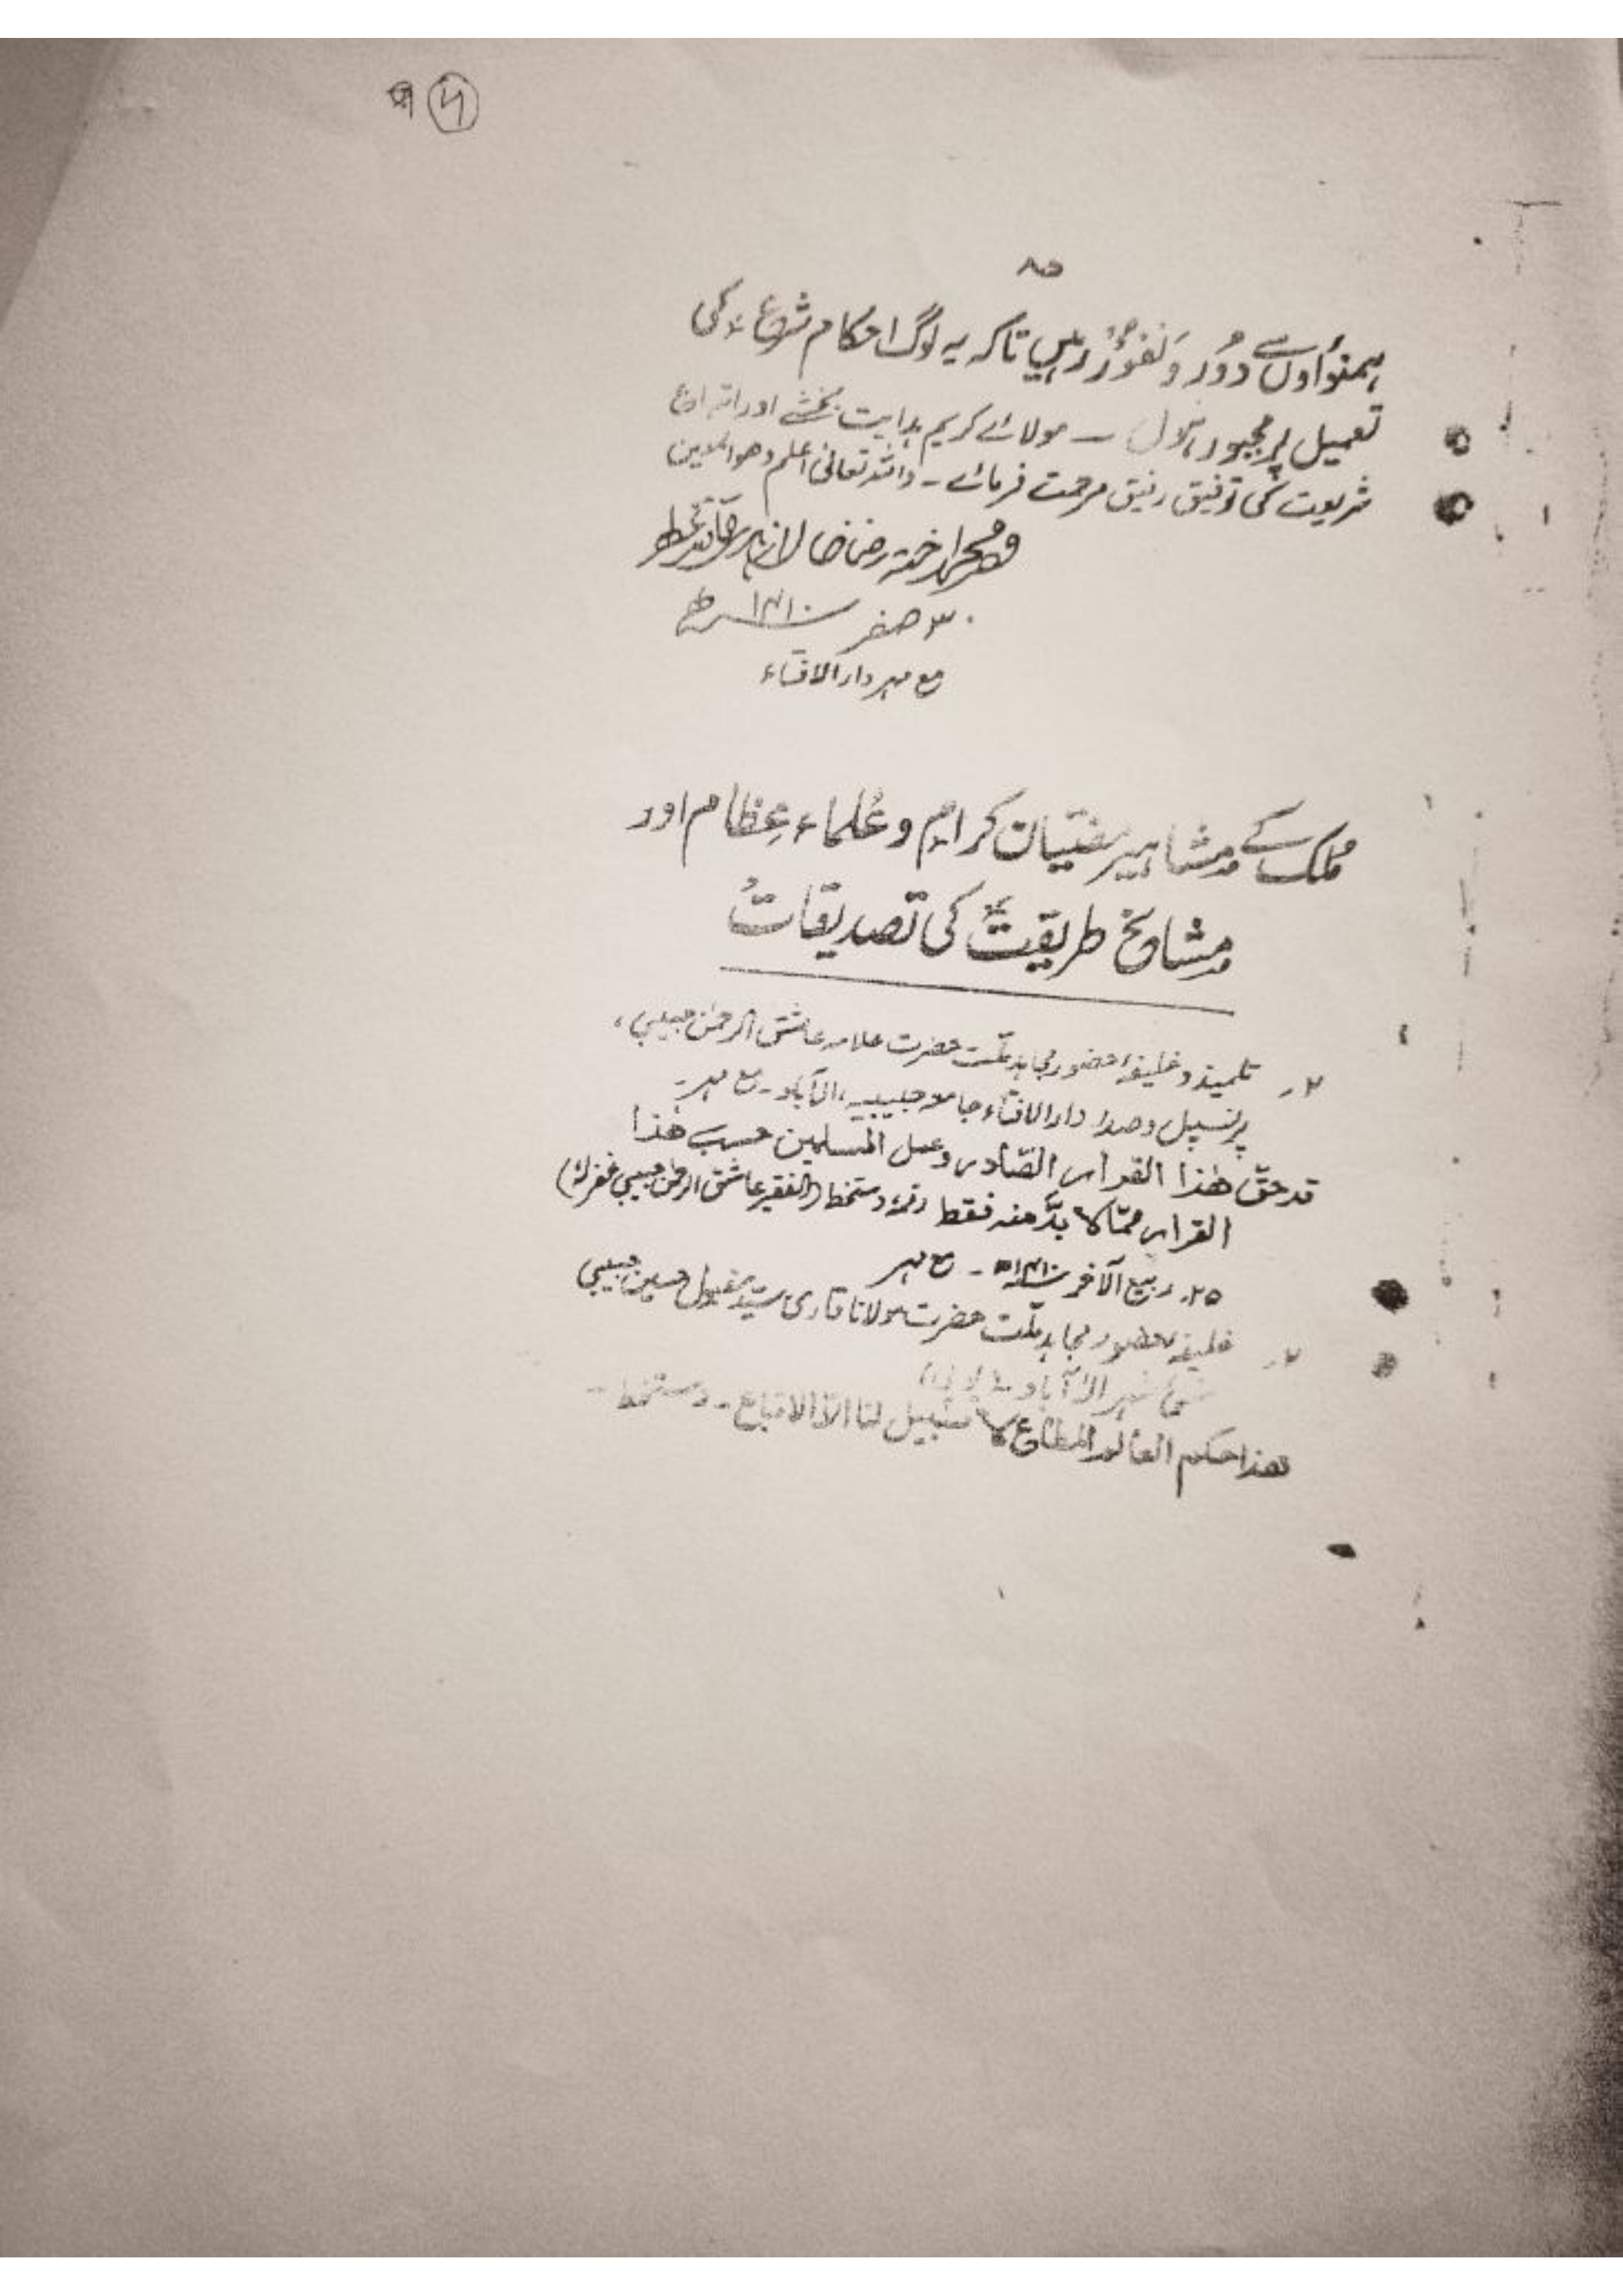 ۸۵
ہمنواؤں سے دور و نفور رہیں تاکہ یہ لوگ احکام شرع کی
تعمیل پر مجبور ہوں ۔ مولائے کریم ہدایت بخشے اور اتباع
شریعت کی توفیق رفیق مرحمت فرمائے ۔ واللہ تعالیٰ اعلم وھو
محمد اختر رضا خاں الازہری
۳۰ صفر ۱۴۱۰ھ
مع مہر دارالافتاء
ملک کے مشاہیر مفتیان کرام و علماء عظام اور
مشائخ طریقت کی تصدیقات
۲۔ تلمیذ و خلیفۂ حضور مجاہد ملت حضرت علامہ عاشق الرحمٰن حبیبی،
پرنسپل و صدر دارالافتاء جامعہ حبیبیہ، الہ آباد ۔ مع مہر۔
قد حق ھذا القرار الصادر وعمل المسلمین حسب ھذا
القرار ممّا لا بدّ منه فقط دستخط (الفقیر عاشق الرحمٰن حبیبی غفرلہٗ)
۲۵۔ ربیع الآخر ۱۴۱۰ھ ۔ مع مہر
خلیفۂ حضور مجاہد ملت حضرت مولانا قاری سید مقبول حسین حبیبی
شہر الہ آباد
ھذا حکم العالم المطاع لا سبیل لنا الا الاتباع ۔ دستخط ۔